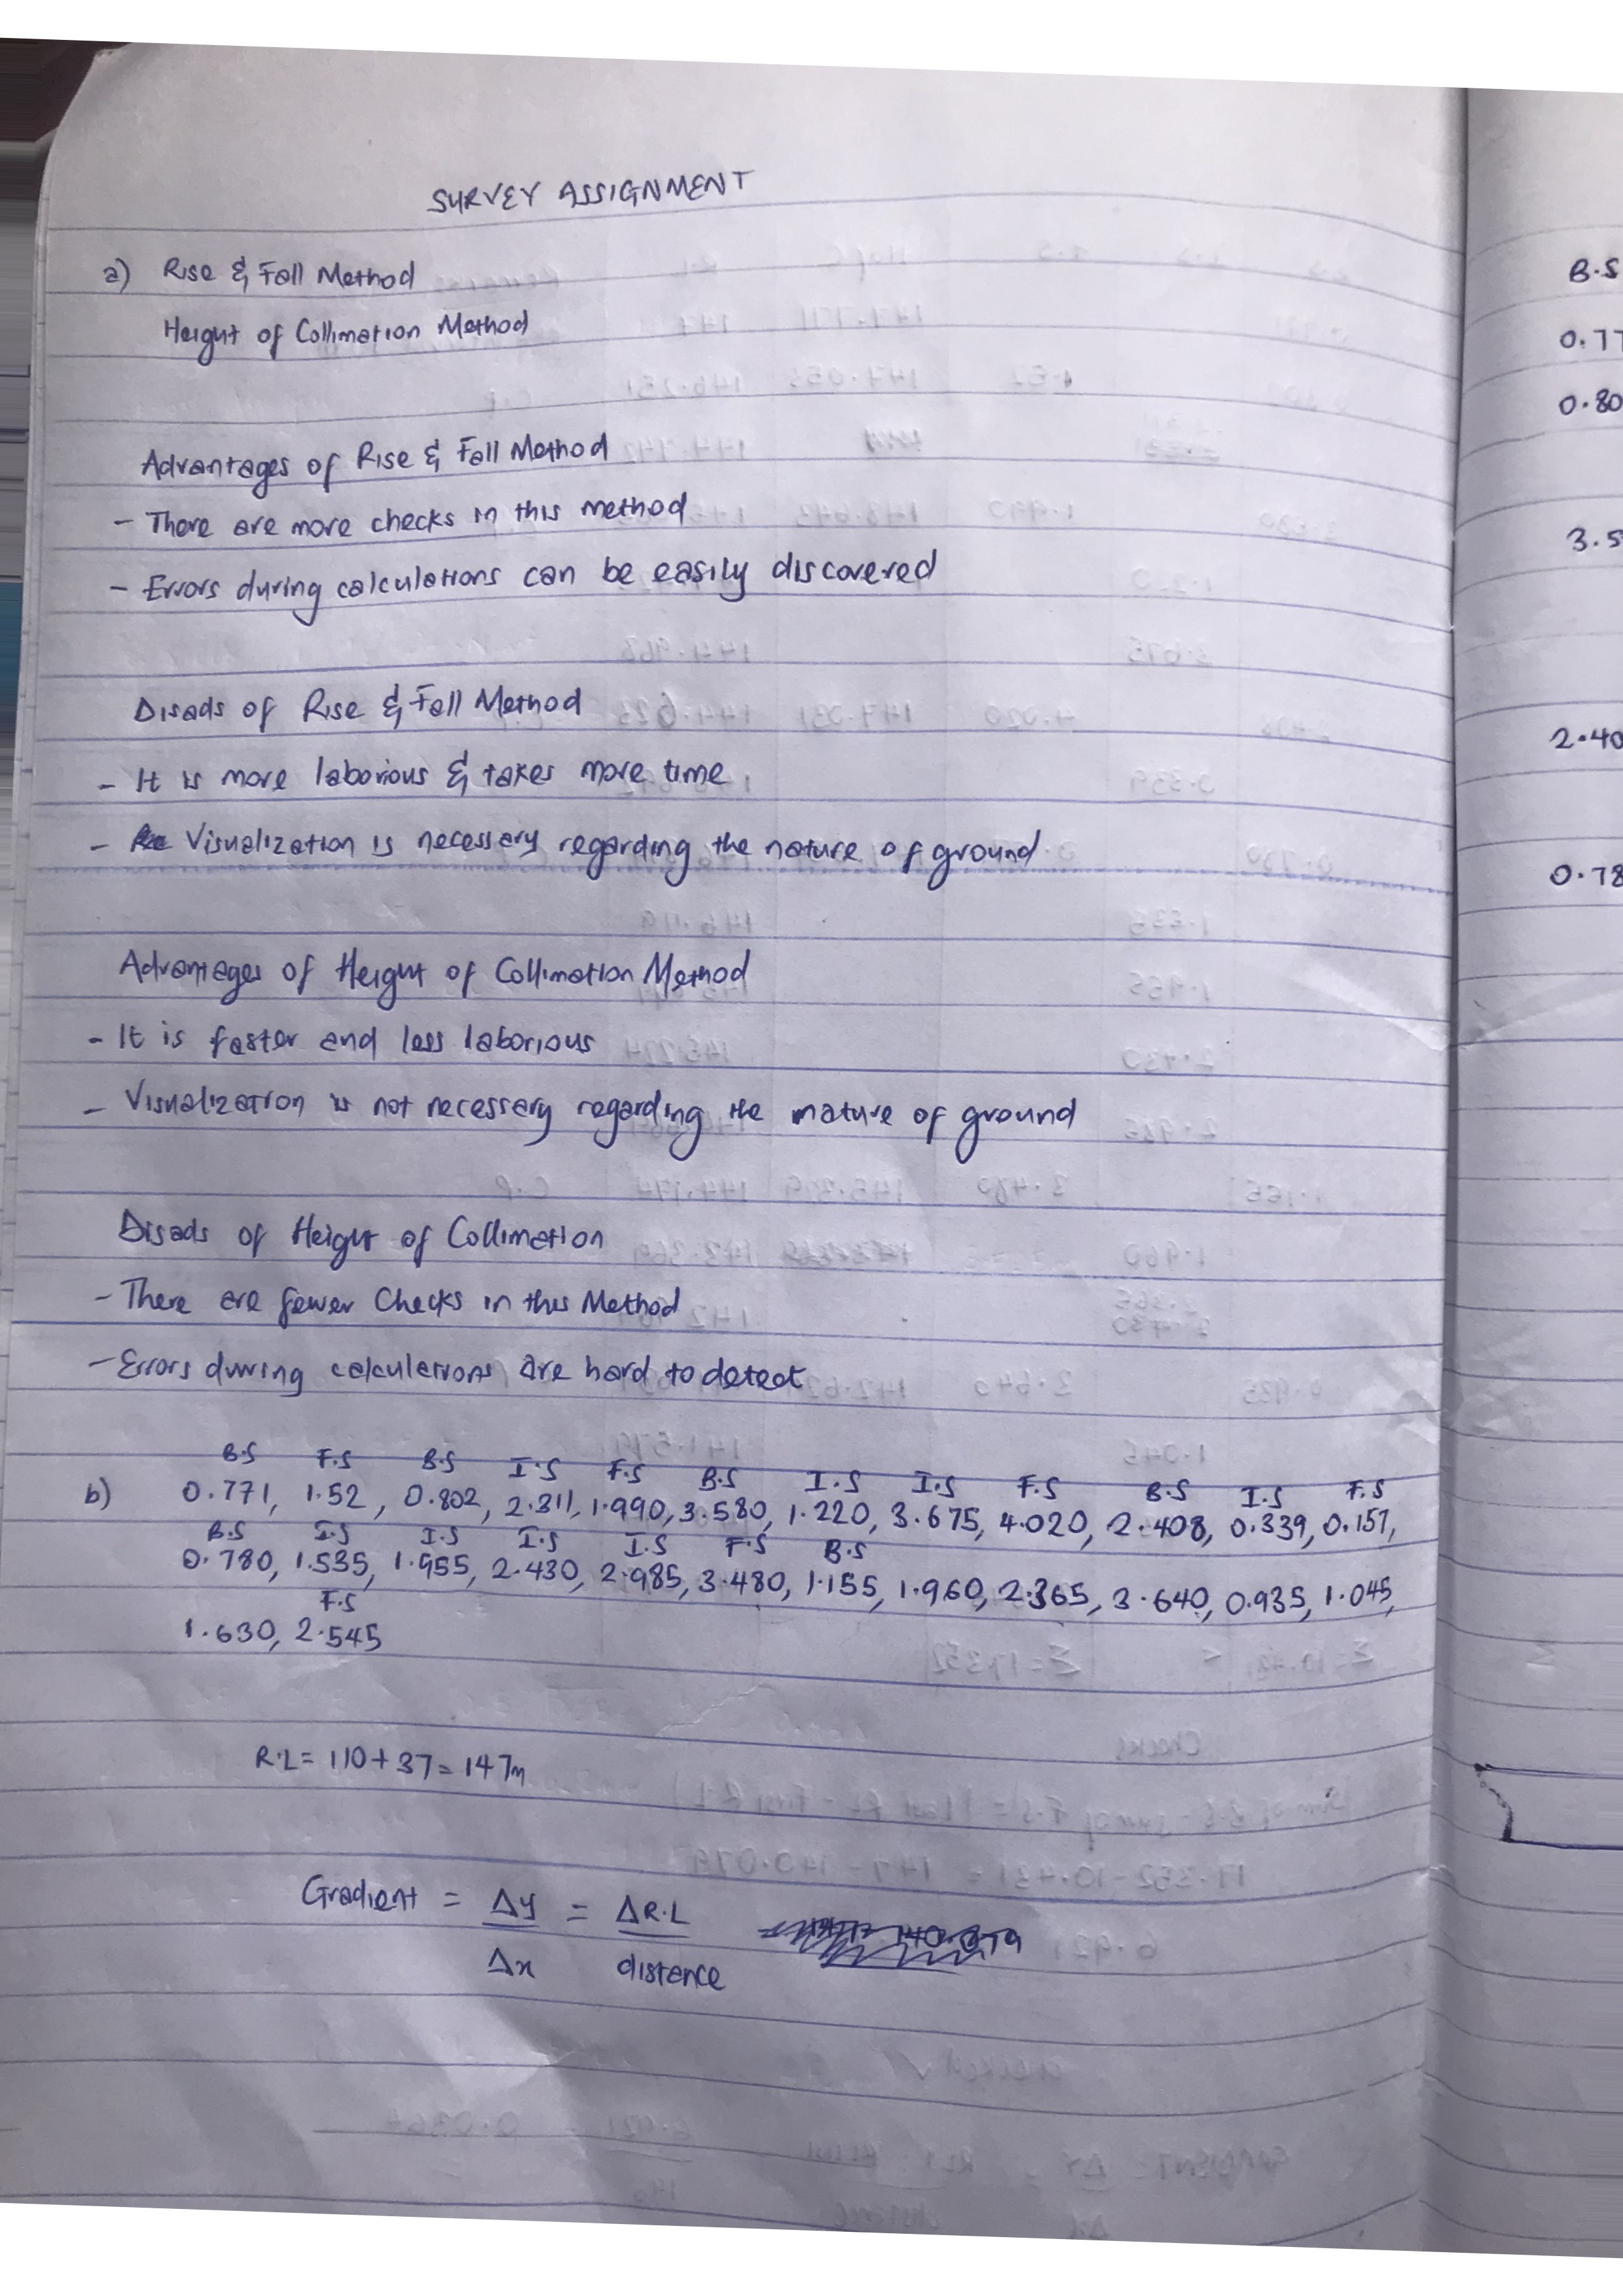 SURVEY ASSIGNMENT
a) Rise & Fall Method
Height of Collimation Method
Advantages of Rise & Fall Method
- There are more checks in this method
- Errors during calculations can be easily discovered
Disads of Rise & Fall Method
- It is more laborious & takes more time
- Visualization is necessary regarding the nature of ground
Advantages of Height of Collimation Method
- It is faster and less laborious
- Visualization is not necessary regarding the nature of ground
Disads of Height of Collimation
- There are fewer Checks in this Method
- Errors during calculations are hard to detect
B.S F.S B.S I.S F.S B.S I.S I.S F.S B.S I.S F.S
b) 0.771, 1.52, 0.802, 2.311, 1.990, 3.580, 1.220, 3.675, 4.020, 2.408, 0.339, 0.157,
B.S I.S I.S I.S I.S F.S B.S
0.780, 1.535, 1.955, 2.430, 2.985, 3.480, 1.155, 1.960, 2.365, 3.640, 0.935, 1.045,
F.S
1.630, 2.545
R.L = 110 + 37 = 147m
Gradient = Δy = ΔR.L
Δx distance
B.S
0.77
0.80
3.5
2.40
0.78